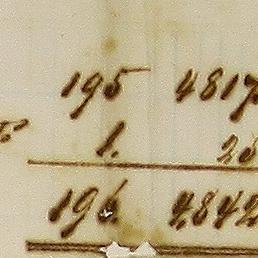 195 4817
1. 25
196. 4842